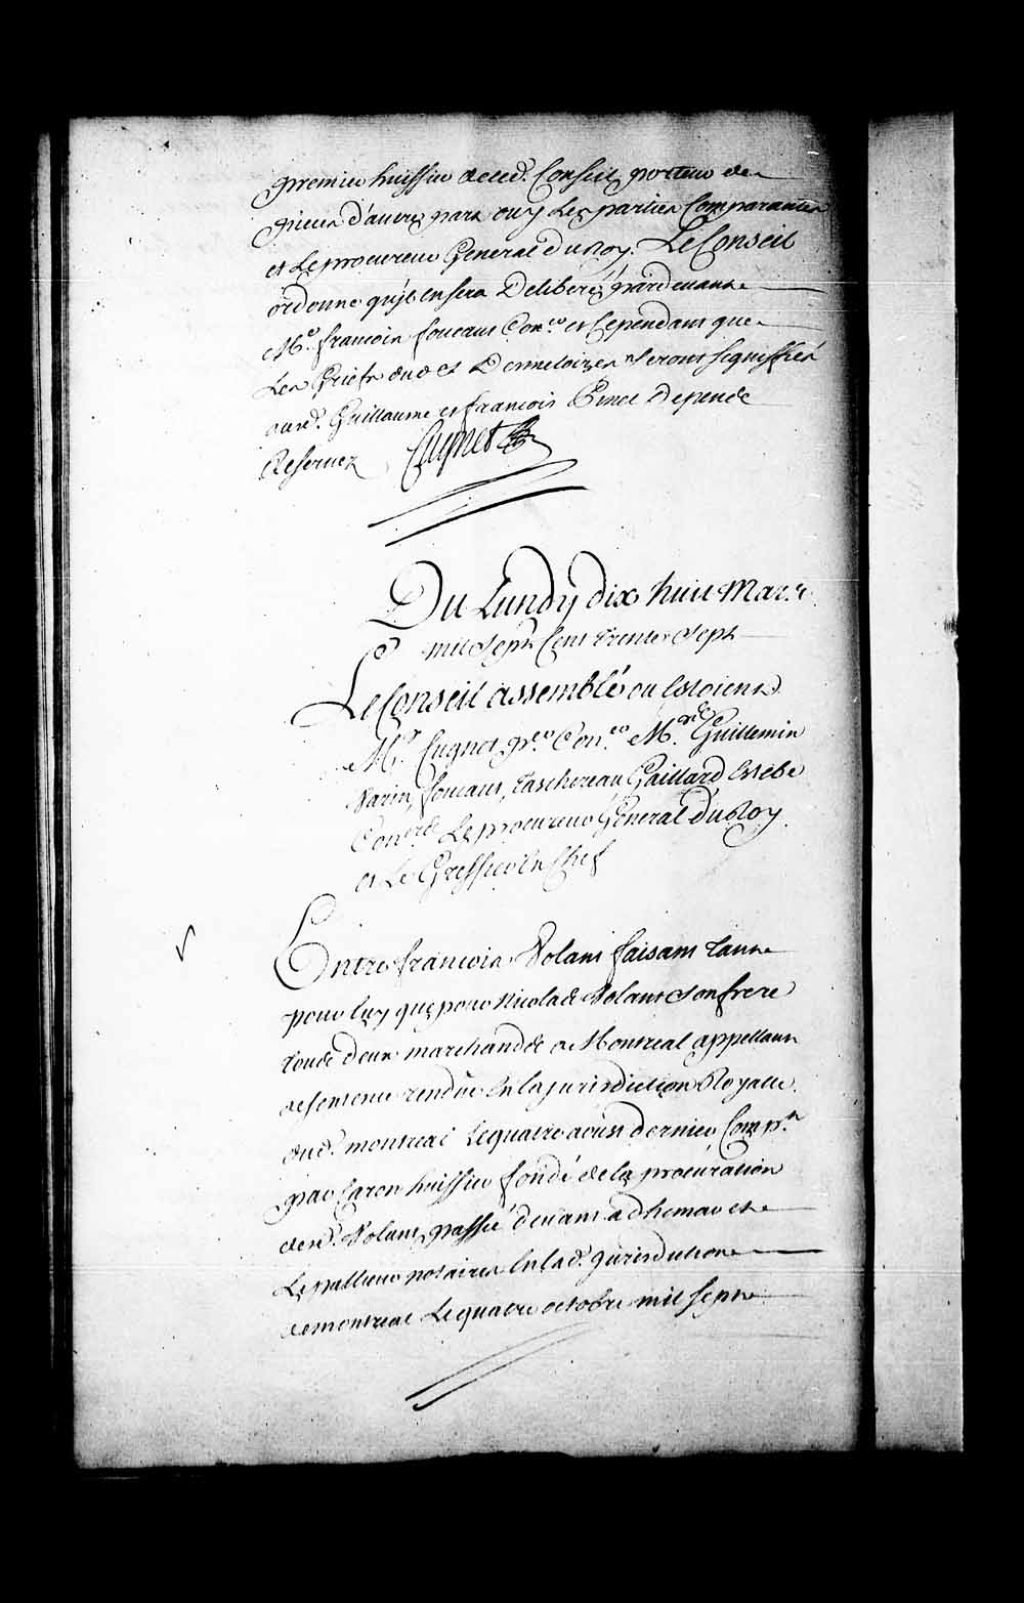 premier huissier deced. Conseil porteur de
pieces d'autre part ouy Les parties Comparantes
et Le procureur General du Roy. Le Conseil
ordonne qu'il en sera Deliberé pardevant
Me. francois foucaut Coner et Cependant que
Les Griefs dud et Demeloizes seront signiffiés
aud. Guillaume et francois Depens
Reservez Cugnet
Du Lundy dix huit Mars
mil sept Cent trente sept
Le Conseil assemblé ou Estoient
Mr. Cugnet pr. Coner Mres Guillemin
Varin, foucaut, taschereau Gaillard Estebe
Coners Le procureur General du Roy
et Le Greffier En Chef
Entre francois Volant faisant tant
pour luy que pour Nicolas Volant son frere
tous deux marchands a Montreal appellant
de sentence rendüe En la jurisdiction Royalle
dud. montreal Le quatre aoust dernier Compt
par Caron huissier fondé de la procuration
dud. Volant, passé devant adhemar et
Lepallieur notaires En lad. jurisdiction
de montreal Le quatre octobre mil sept